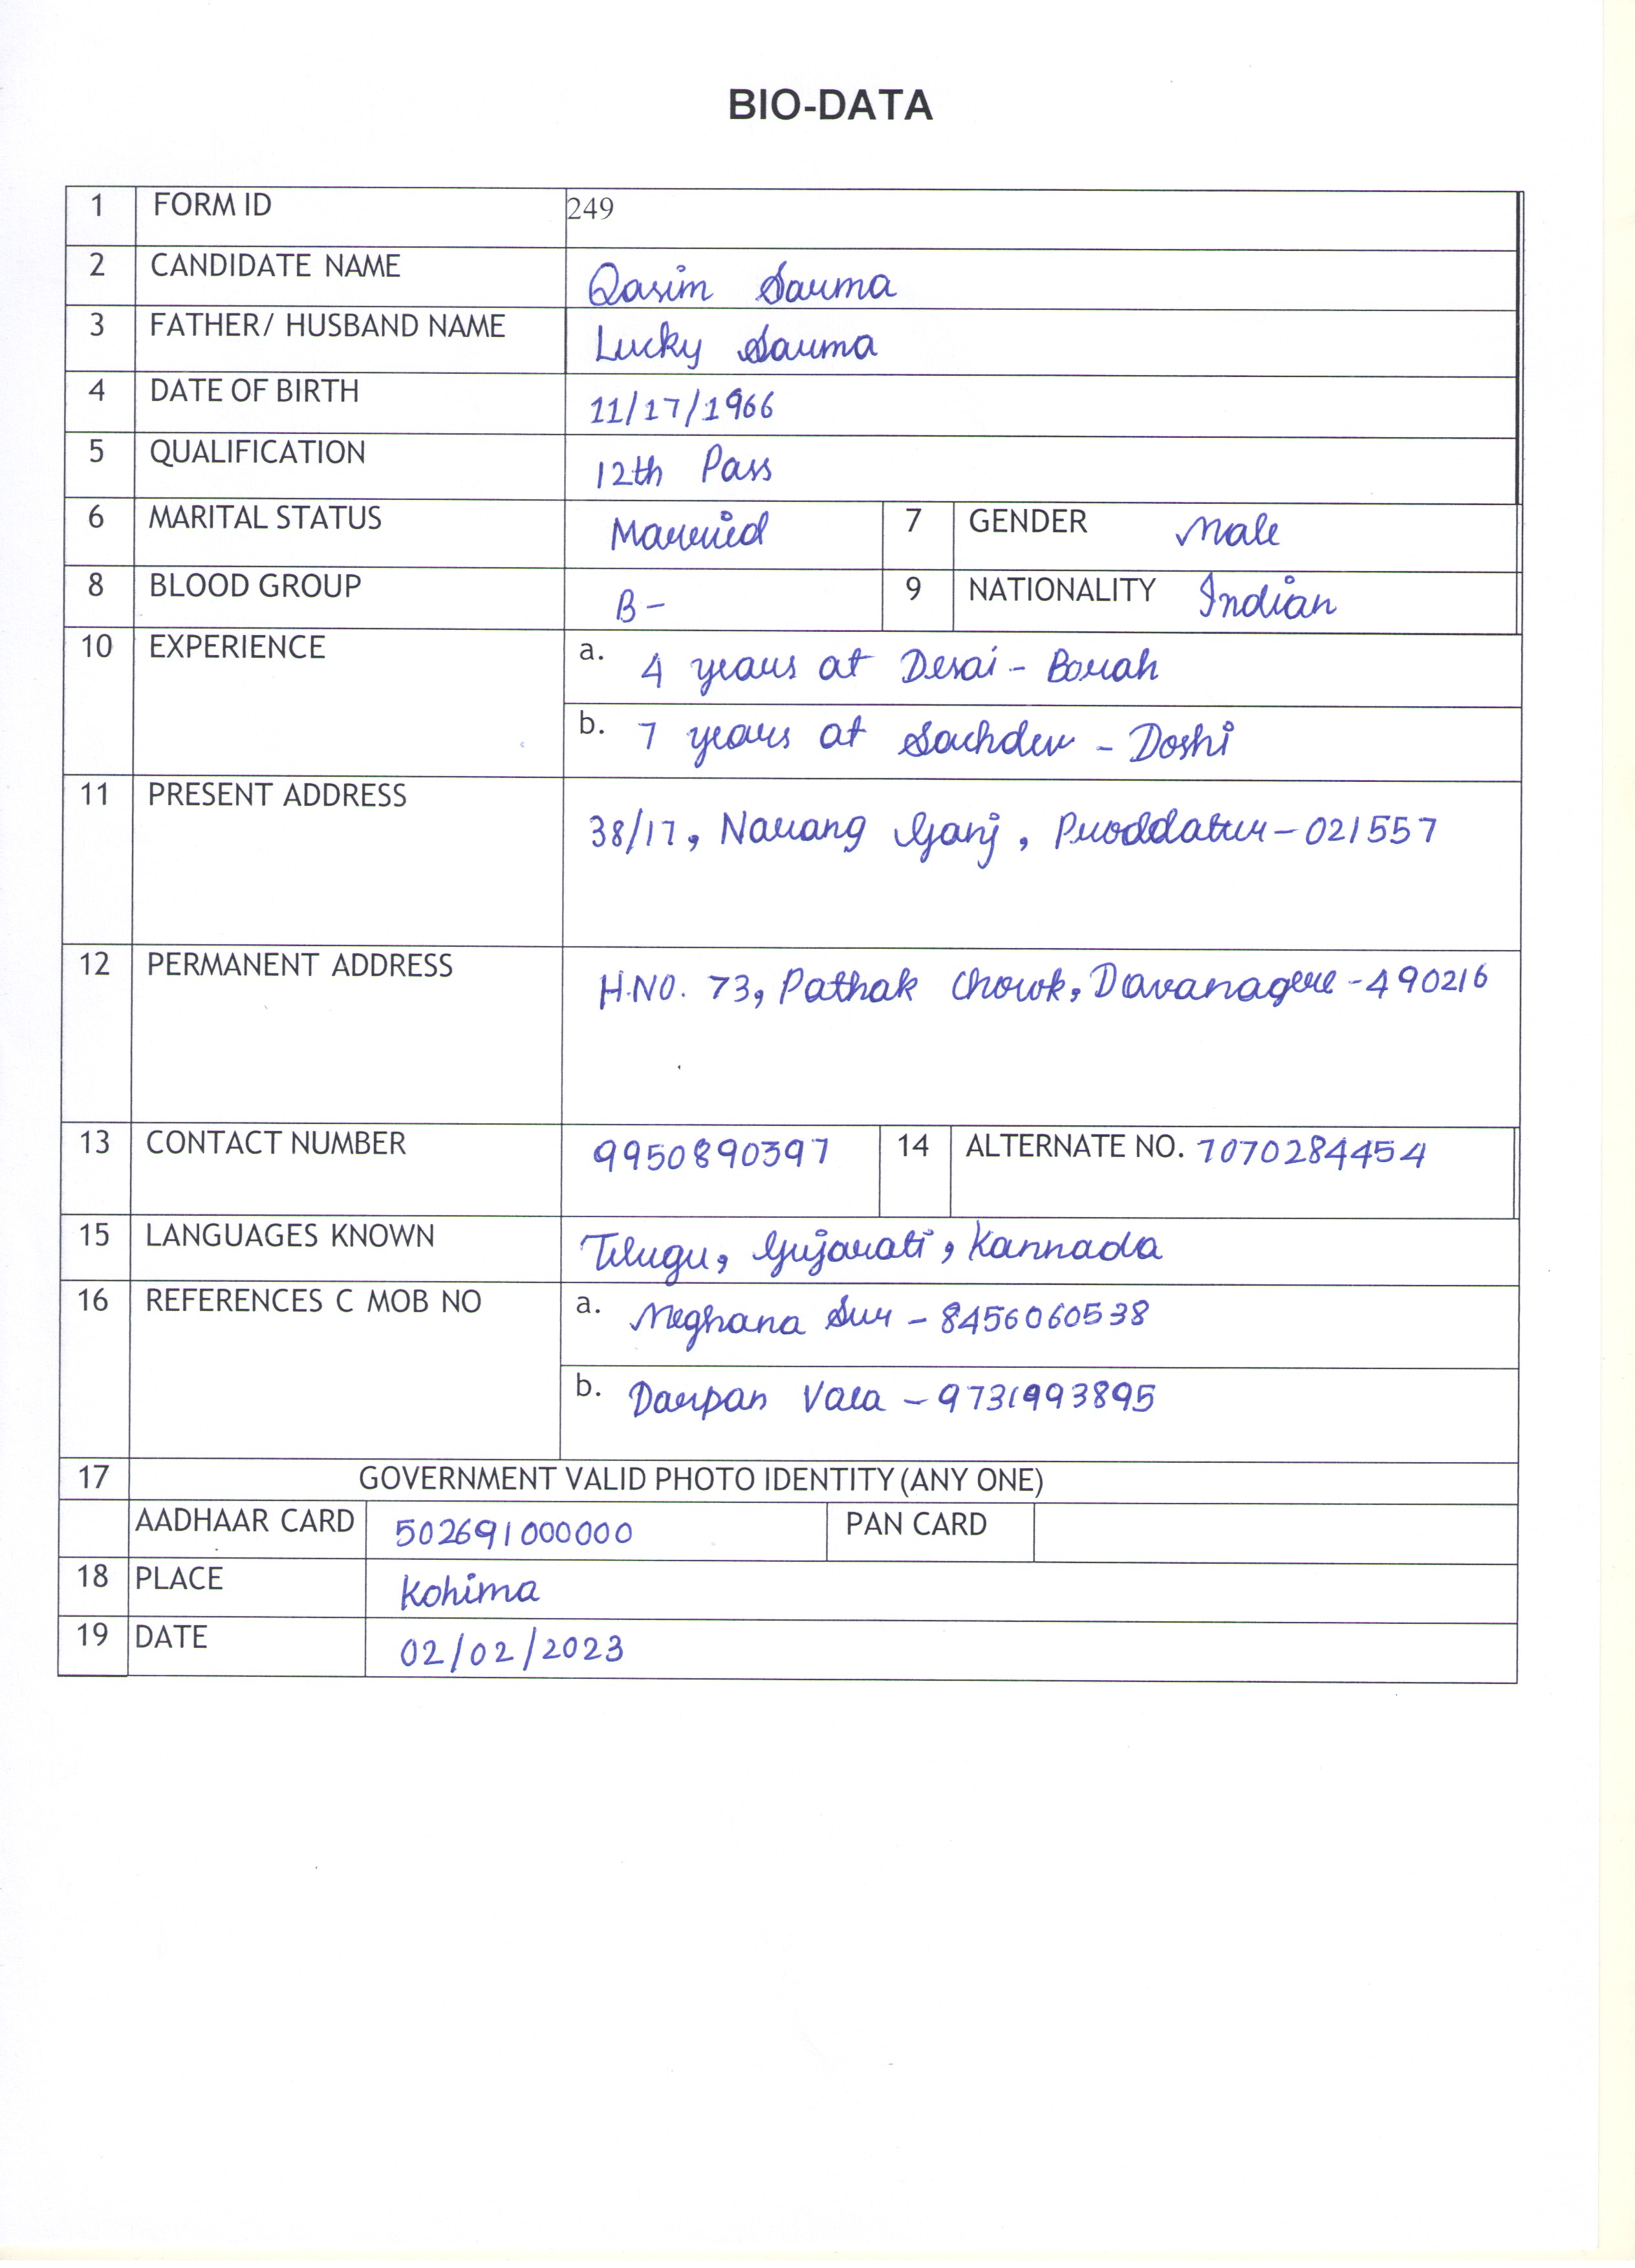 BIO-DATA
1 FORM ID 249
2 CANDIDATE NAME Qasim Sarma
3 FATHER/ HUSBAND NAME Lucky Sarma
4 DATE OF BIRTH 11/17/1966
5 QUALIFICATION 12th Pass
6 MARITAL STATUS Married 7 GENDER Male
8 BLOOD GROUP B- 9 NATIONALITY Indian
10 EXPERIENCE a. 4 years at Desai - Borah
b. 7 years at Sachdev - Doshi
11 PRESENT ADDRESS 38/17, Narang Ganj, Proddatur-021557
12 PERMANENT ADDRESS H.NO. 73, Pathak Chowk, Davanagere-490216
13 CONTACT NUMBER 9950890397 14 ALTERNATE NO. 7070284454
15 LANGUAGES KNOWN Telugu, Gujarati, Kannada
16 REFERENCES C MOB NO a. Meghana Sur - 8456060538
b. Darpan Vala - 9731993895
17 GOVERNMENT VALID PHOTO IDENTITY (ANY ONE)
AADHAAR CARD 502691000000 PAN CARD
18 PLACE Kohima
19 DATE 02/02/2023